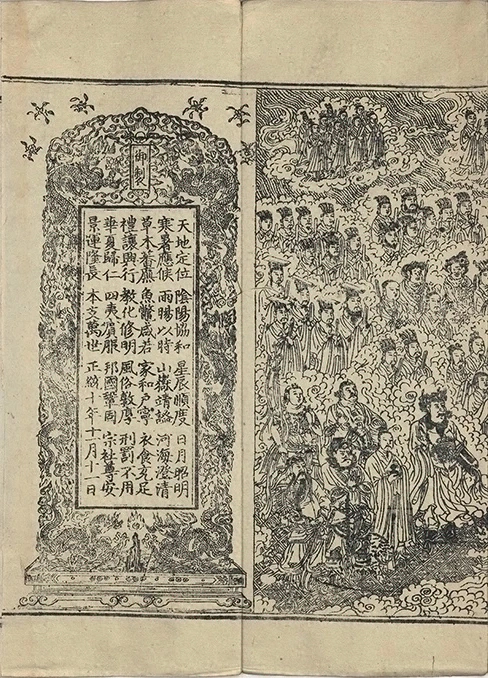 御製
天地定位 陰陽恊和 星辰順度 日月昭明
寒暑應候 雨暘以時 山嶽靖謐 河海澄清
草木蕃廡 魚鱉咸若 家和戶寧 衣食充足
禮讓興行 教化修明 風俗敦厚 刑罰不用
華夏歸仁 四夷賔服 邦國鞏固 宗社尊安
景運隆長 本支萬世 正統十年十一月十一日